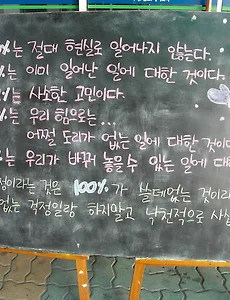 %는 절대 현실로 일어나지 않는다.
%는 이미 일어난 일에 대한 것이다.
%는 사소한 고민이다.
%는 우리 힘으로는...
어쩔 도리가 없는 일에 대한 것이다
%는 우리가 바꿔 놓을 수 있는 일에 대
정이라는 것은 100%가 쓸데없는 것이라
없는 걱정일랑 하지말고 낙천적으로 사십